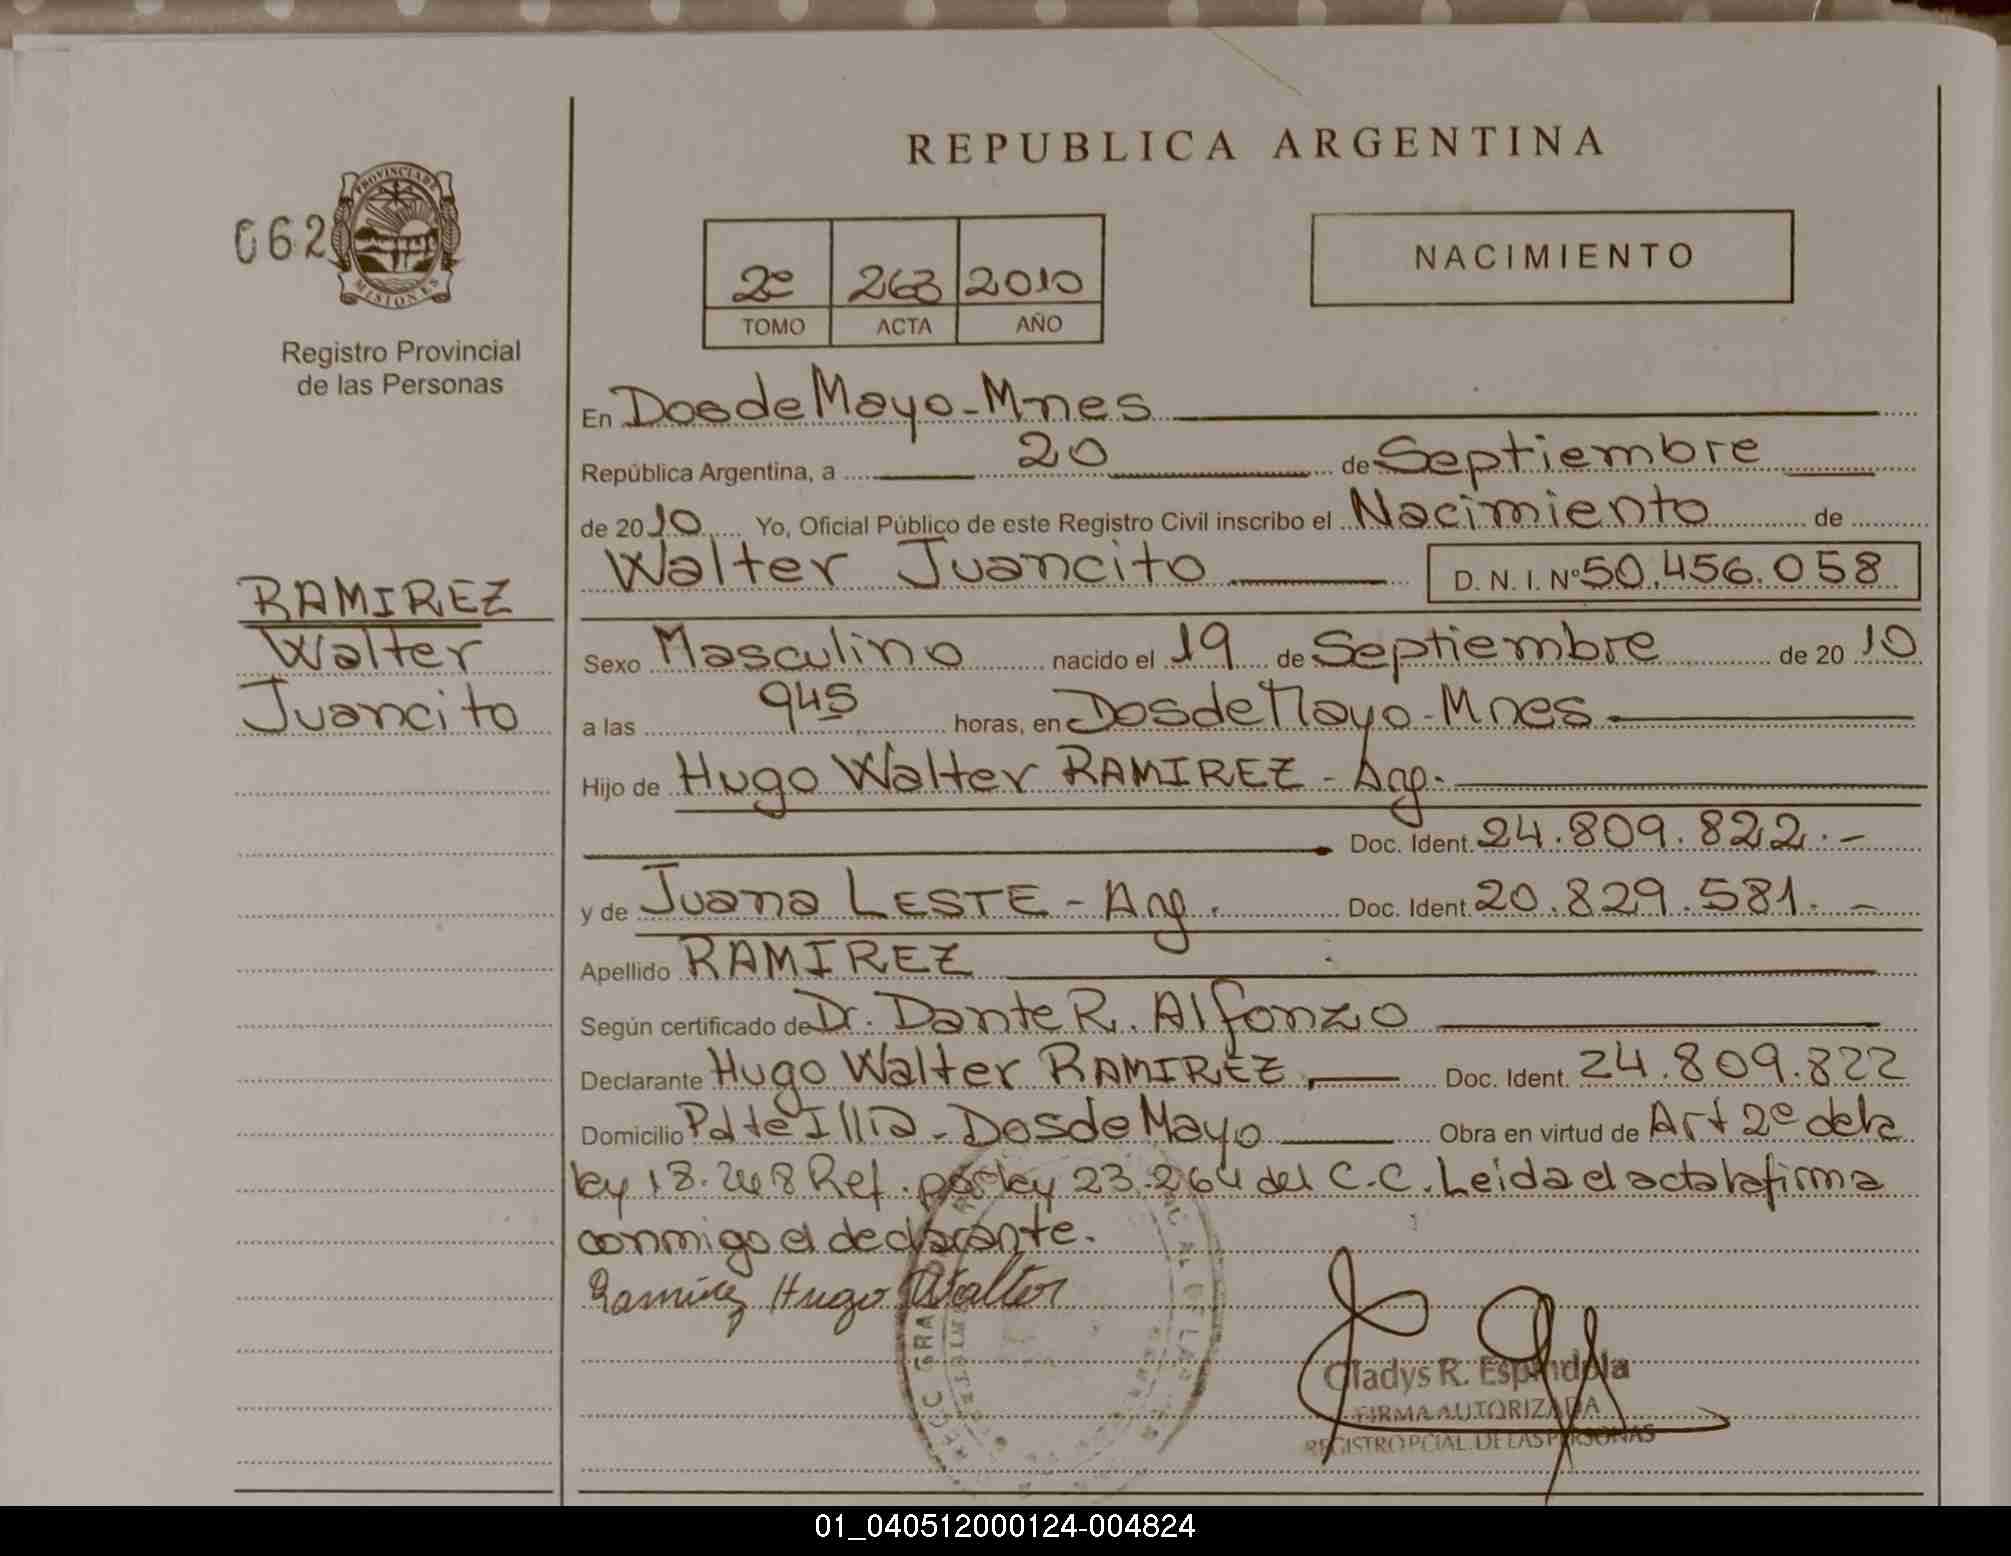 REPUBLICA ARGENTINA
062
PROVINCIA DE
MISIONES
Registro Provincial
de las Personas
2º 263 2010
TOMO ACTA AÑO
NACIMIENTO
En Dos de Mayo - Mnes
República Argentina, a 20 de Septiembre
de 2010 Yo, Oficial Público de este Registro Civil inscribo el Nacimiento de
Walter Juancito D. N. I. Nº 50.456.058
RAMIREZ
Walter
Juancito
Sexo Masculino nacido el 19 de Septiembre de 2010
a las 945 horas, en Dos de Mayo - Mnes
Hijo de Hugo Walter RAMIREZ - Arg.
Doc. Ident. 24.809.822.-
y de Juana LESTE - Arg. Doc. Ident. 20.829.581.-
Apellido RAMIREZ
Según certificado de Dr. Dante R. Alfonzo
Declarante Hugo Walter RAMIREZ, Doc. Ident. 24.809.822
Domicilio Pdte Illia - Dos de Mayo Obra en virtud de Art 2º de la
ley 18.248 Ref. por ley 23.264 del C.C. Leida el acta la firma
conmigo el declarante.
Ramírez Hugo Walter
Gladys R. Espindola
FIRMA AUTORIZADA
REGISTRO PCIAL. DE LAS PERSONAS
01_040512000124-004824